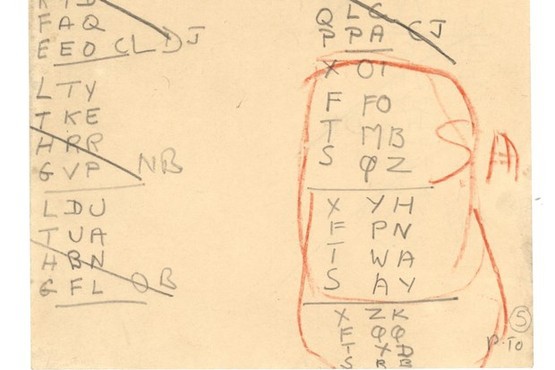 FAQ
EEO CLDJ
LTY
TKE
HRR
GVP NB
LDU
TUA
HBN
GFL OB
QLC
PPA CJ
X OI
F FO
T MB
S QZ
SA
X YH
F PN
T WA
S AY
X ZK
F QQ
T XD
S RB
5
P.TO